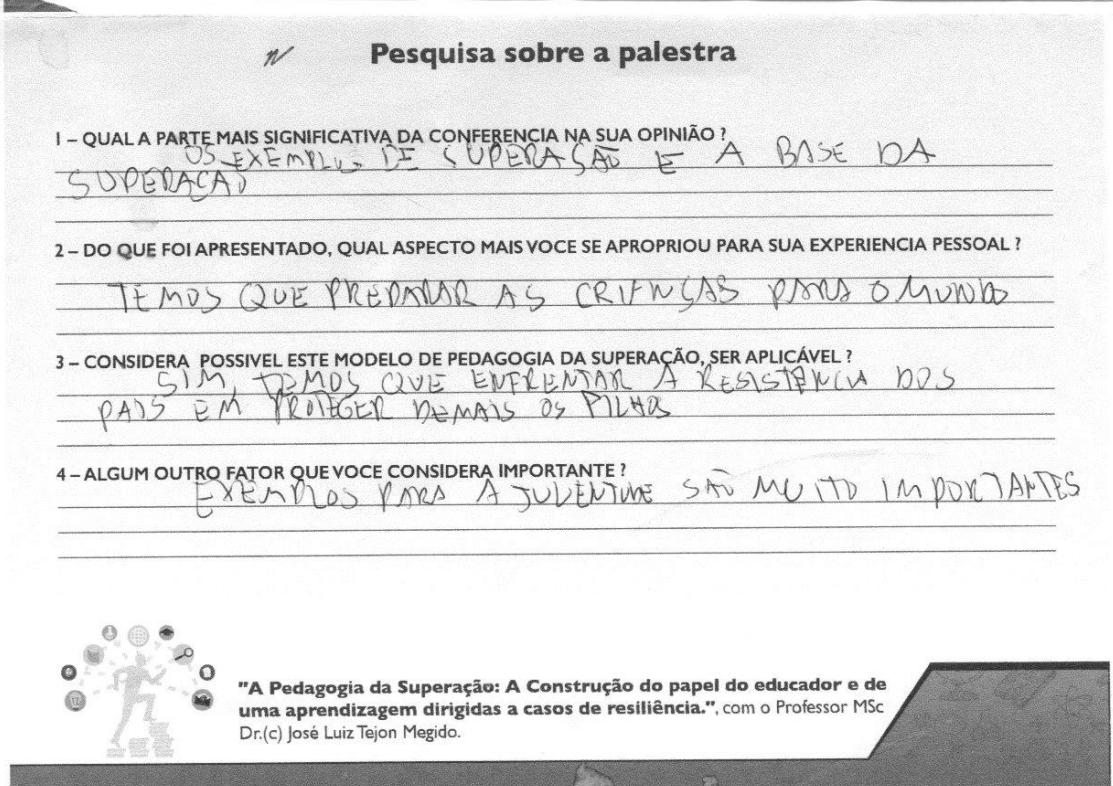 Pesquisa sobre a palestra
1 – QUAL A PARTE MAIS SIGNIFICATIVA DA CONFERENCIA NA SUA OPINIÃO ?
OS EXEMPLOS DE SUPERAÇÃO E A BASE DA
SUPERAÇÃO
2 – DO QUE FOI APRESENTADO, QUAL ASPECTO MAIS VOCE SE APROPRIOU PARA SUA EXPERIENCIA PESSOAL ?
TEMOS QUE PREPARAR AS CRIANÇAS PARA O MUNDO
3 – CONSIDERA POSSIVEL ESTE MODELO DE PEDAGOGIA DA SUPERAÇÃO, SER APLICÁVEL ?
SIM, TEMOS QUE ENFRENTAR A RESISTÊNCIA DOS
PAIS EM PROTEGER DEMAIS OS FILHOS
4 – ALGUM OUTRO FATOR QUE VOCE CONSIDERA IMPORTANTE ?
EXEMPLOS PARA A JUVENTUDE SÃO MUITO IMPORTANTES
"A Pedagogia da Superação: A Construção do papel do educador e de
uma aprendizagem dirigidas a casos de resiliência.", com o Professor MSc
Dr.(c) José Luiz Tejon Megido.